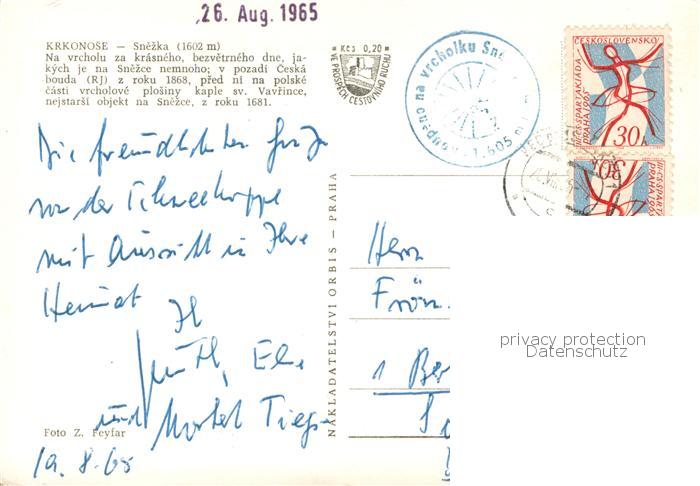 26. Aug. 1965
KRKONOŠE — Sněžka (1602 m)
Na vrcholu za krásného, bezvětrného dne, ja-
kých je na Sněžce nemnoho; v pozadí Česká
bouda (RJ) z roku 1868, před ní na polské
části vrcholové plošiny kaple sv. Vavřince,
nejstarší objekt na Sněžce, z roku 1681.
Kčs 0,20
VE PROSPĚCH CESTOVNÍHO RUCHU
na vrcholku Sně
1.605 m
ČESKOSLOVENSKO
III.CS.SPARTAKIÁDA
PRAHA 1965
30h
30h
III.CS.SPART
PRAHA 1965
Die freundlichsten Grüße
von der Schneekoppe
mit Aussicht in Ihre
Heimat Ihr
und
19.8.65
NAKLADATELSTVÍ ORBIS — PRAHA
Herrn
1 Ber
privacy protection
Datenschutz
Foto Z. Feyfar